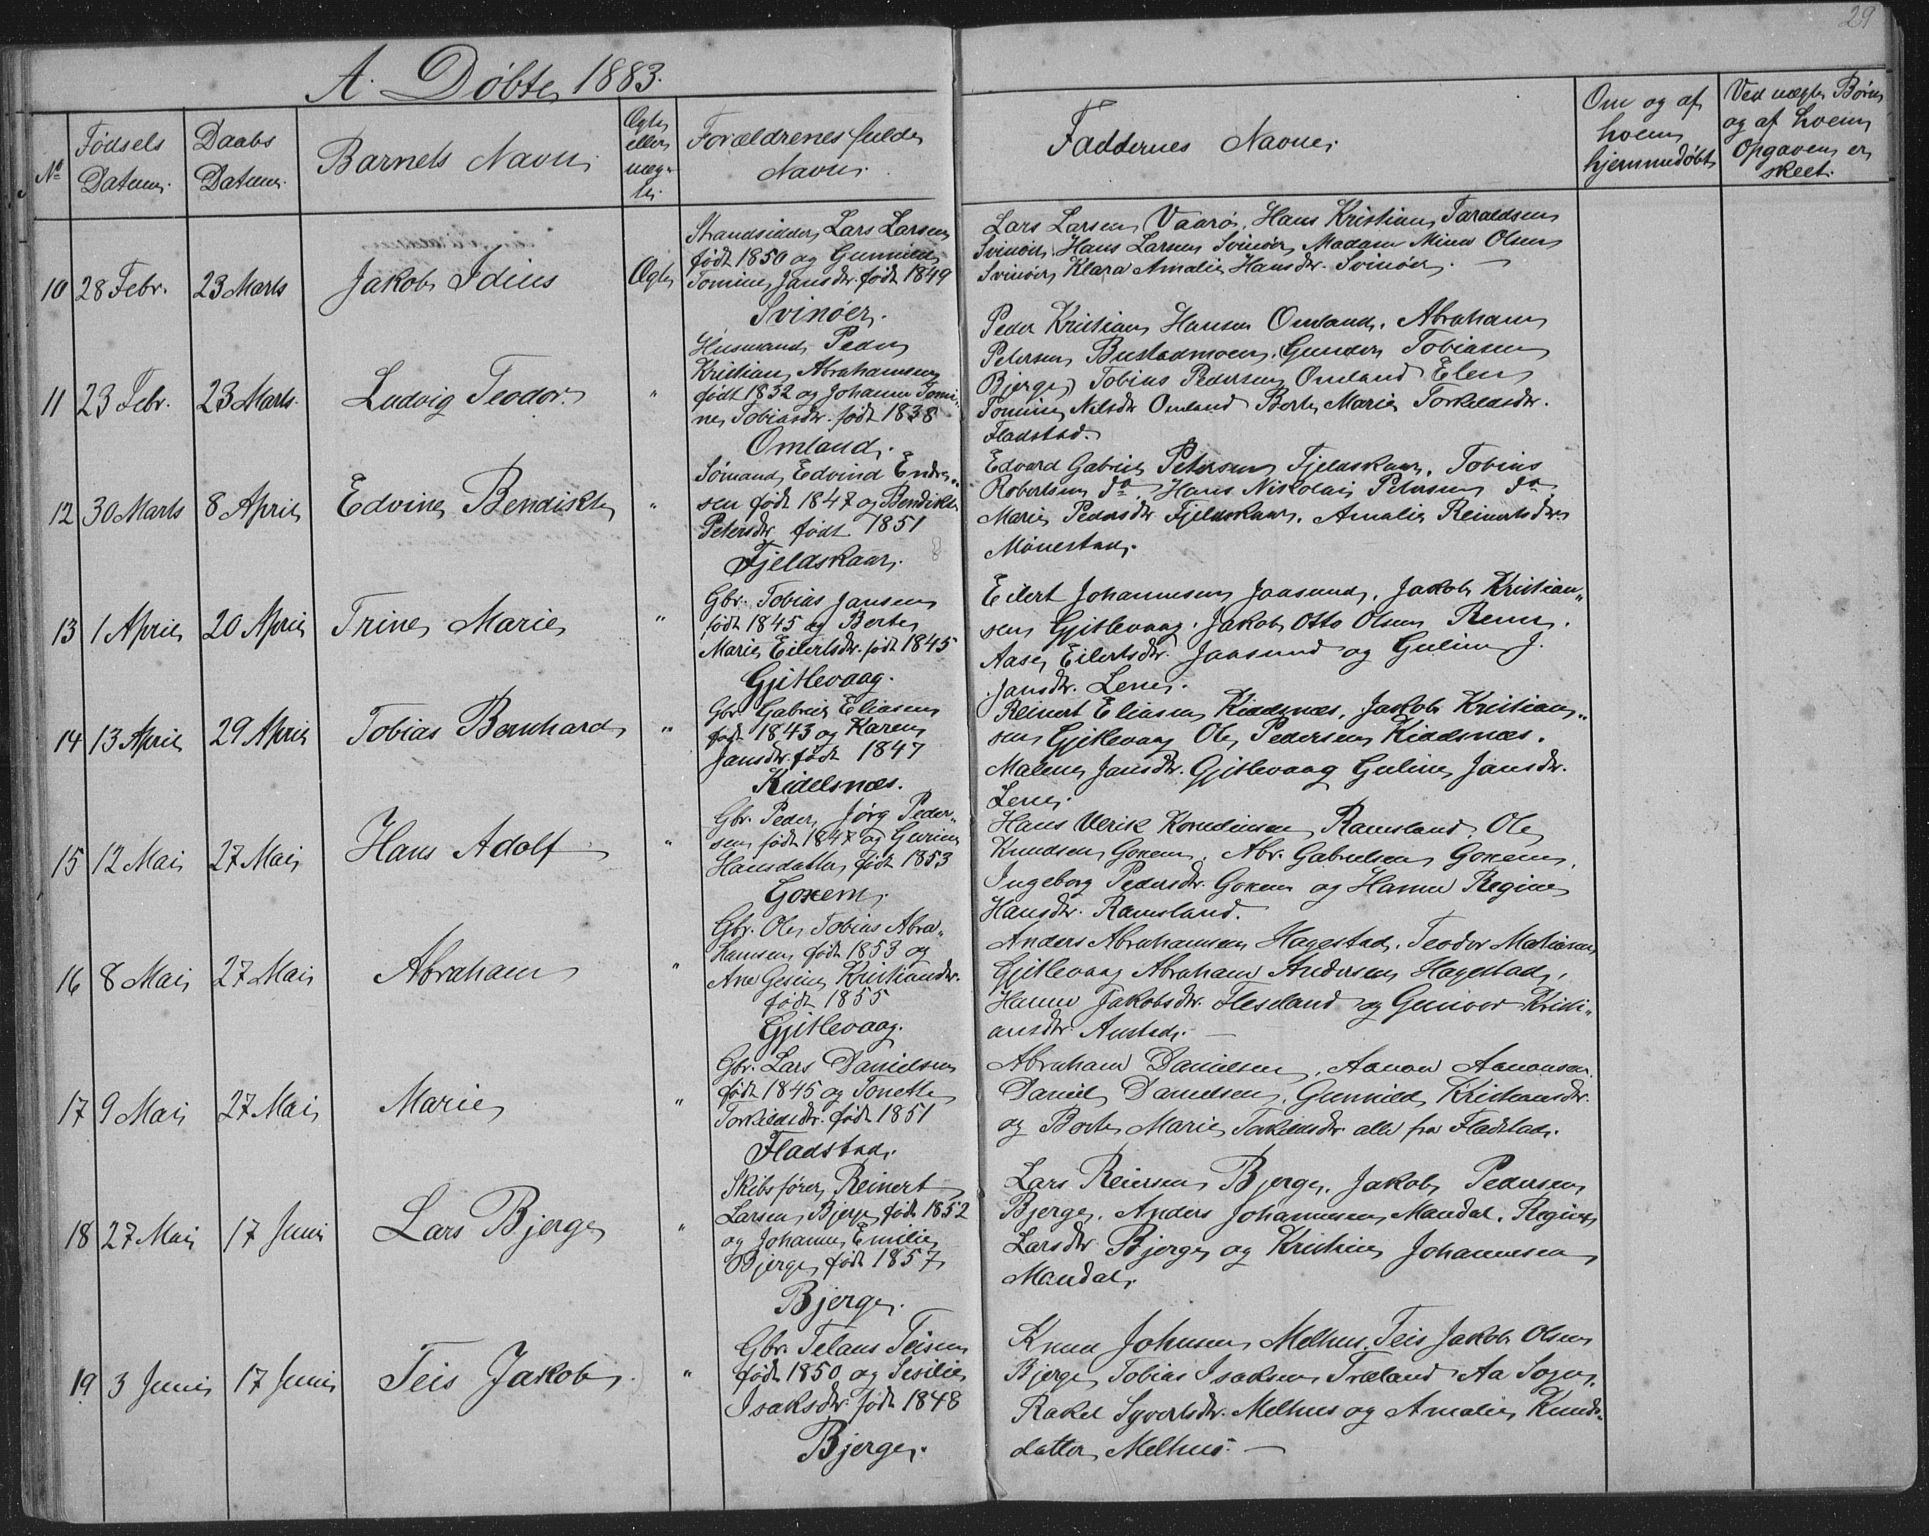 29
A. Døbte 1883.
No
Fødsels Datum.
Daabs Datum.
Barnets Navn.
Ægte eller uægte.
Forældrenes fulde Navn.
Faddernes Navne.
Om og af hvem hjemmedøbt
Ved uægte Børn og af hvem Opgaven er skeet.
10 28 Febr. 23 Marts Jakob Idius Ægte
Strandsidder Lars Larsen
født 1850 og Gunnild
Tomine Jansdr. født 1849
Svinøer.
Lars Larsen Vaarø, Hans Kristian Taraldsen
Svinøer, Hans Larsen Svinøer, Madam Mina Olsen
Svinøer, Klara Amalie Hansdr. Svinøer. —
11 23 Febr. 23 Marts. Ludvig Teodor. "
Husmand Peder
Kristian Abrahamsen
født 1832 og Johanne Tomi-
ne Tobiasdr. født 1838
Omland.
Peder Kristian Hansen Omland. Abraham
Petersen Bustadmoen, Gunder Tobiasen
Bjerge, Tobias Pedersen Omland Elen
Tomine Nilsdr Omland Berte Marie Torkeldsdr.
Fladstad.
12 30 Marts 8 April Edvine Bendikte "
Sømand Edvind Endre-
sen født 1847 og Bendikte
Petersdr født 1851
Fjeldskaar.
Edvard Gabriel Petersen Fjeldskaar. Tobias
Robertsen do, Hans Nikolai Petersen do
Marie Pedersdr Fjeldskaar. Amalie Reinertsdr
Mønestad.
13 1 April 20 April Trine Marie "
Gbr. Tobias Jansen
født 1845 og Berte
Marie Eilertsdr. født 1845
Gjitlevaag.
Eilert Johannesen Jaasund, Jakob Kristian-
sen Gjitlevaag. Jakob Otto Olsen Reme.
Aase Eilertsdr. Jaasund og Guline J.
Jansdr. Lene.
14 13 April 29 April Tobias Bernhard "
Gbr Gabriel Eliasen
født 1843 og Karen
Jansdr. født 1847
Kidelsnæs.
Reinert Eliasen Kiddelsnæs, Jakob Kristian-
sen Gjitlevaag Ole Pedersen Kiddelsnæs.
Malene Jansdr. Gjitlevaag Guline Jansdr.
Lene.
15 12 Mai 27 Mai Hans Adolf "
Gbr. Peder Jørg Peder-
sen født 1847 og Gurine
Hansdatter født 1853
Goxem.
Hans Ulrik Korneliusen Ramsland, Ole
Knudsen Goxem, Abr. Gabrielsen Goxem,
Ingeborg Pedersdr. Goxem og Hanne Regine
Hansdr. Ramsland.
16 8 Mai 27 Mai Abraham "
Gbr. Ole Tobias Abra-
hamsen født 1853 og
Ane Gesine Kristiansdr.
født 1855
Gjitlevaag.
Anders Abrahamsen Hagestad, Teodor Matiasen
Gjitlevaag Abraham Andersen Hagestad,
Hanne Jakobsdr. Fleseland og Gunvor Kristi-
ansdr. Austad. —
17 9 Mai 27 Mai Marie "
Gbr. Lars Danielsen
født 1845 og Tonette
Torkeldsdr. født 1851
Fladstad.
Abraham Danielsen, Aanon Aanonsen.
Daniel Danielsen, Gunnild Kristiansdr.
og Berte Marie Torkeldsdr. alle fra Fladstad.
18 27 Mai 17 Juni Lars Bjerge "
Skibsfører Reinert
Larsen Bjerge født 1852
og Johanne Emilie
Bjerge født 1857
Bjerge.
Lars Reiersen Bjerge, Jakob Pedersen
Bjerge, Anders Johannesen Mandal. Regine
Larsdr Bjerge og Kristine Johannesen
Mandal.
19 3 Juni 17 Juni Teis Jakob. "
Gbr. Telaus Teisen
født 1850 og Sesilie
Isaksdr født 1848
Bjerge.
Knud Johnsen Melhus, Teis Jakob Olsen
Bjerge Tobias Isaksen Træland Aa Sogn,
Rakel Syvertsdr. Melhus og Amalie Knuds-
datter Melhus. —